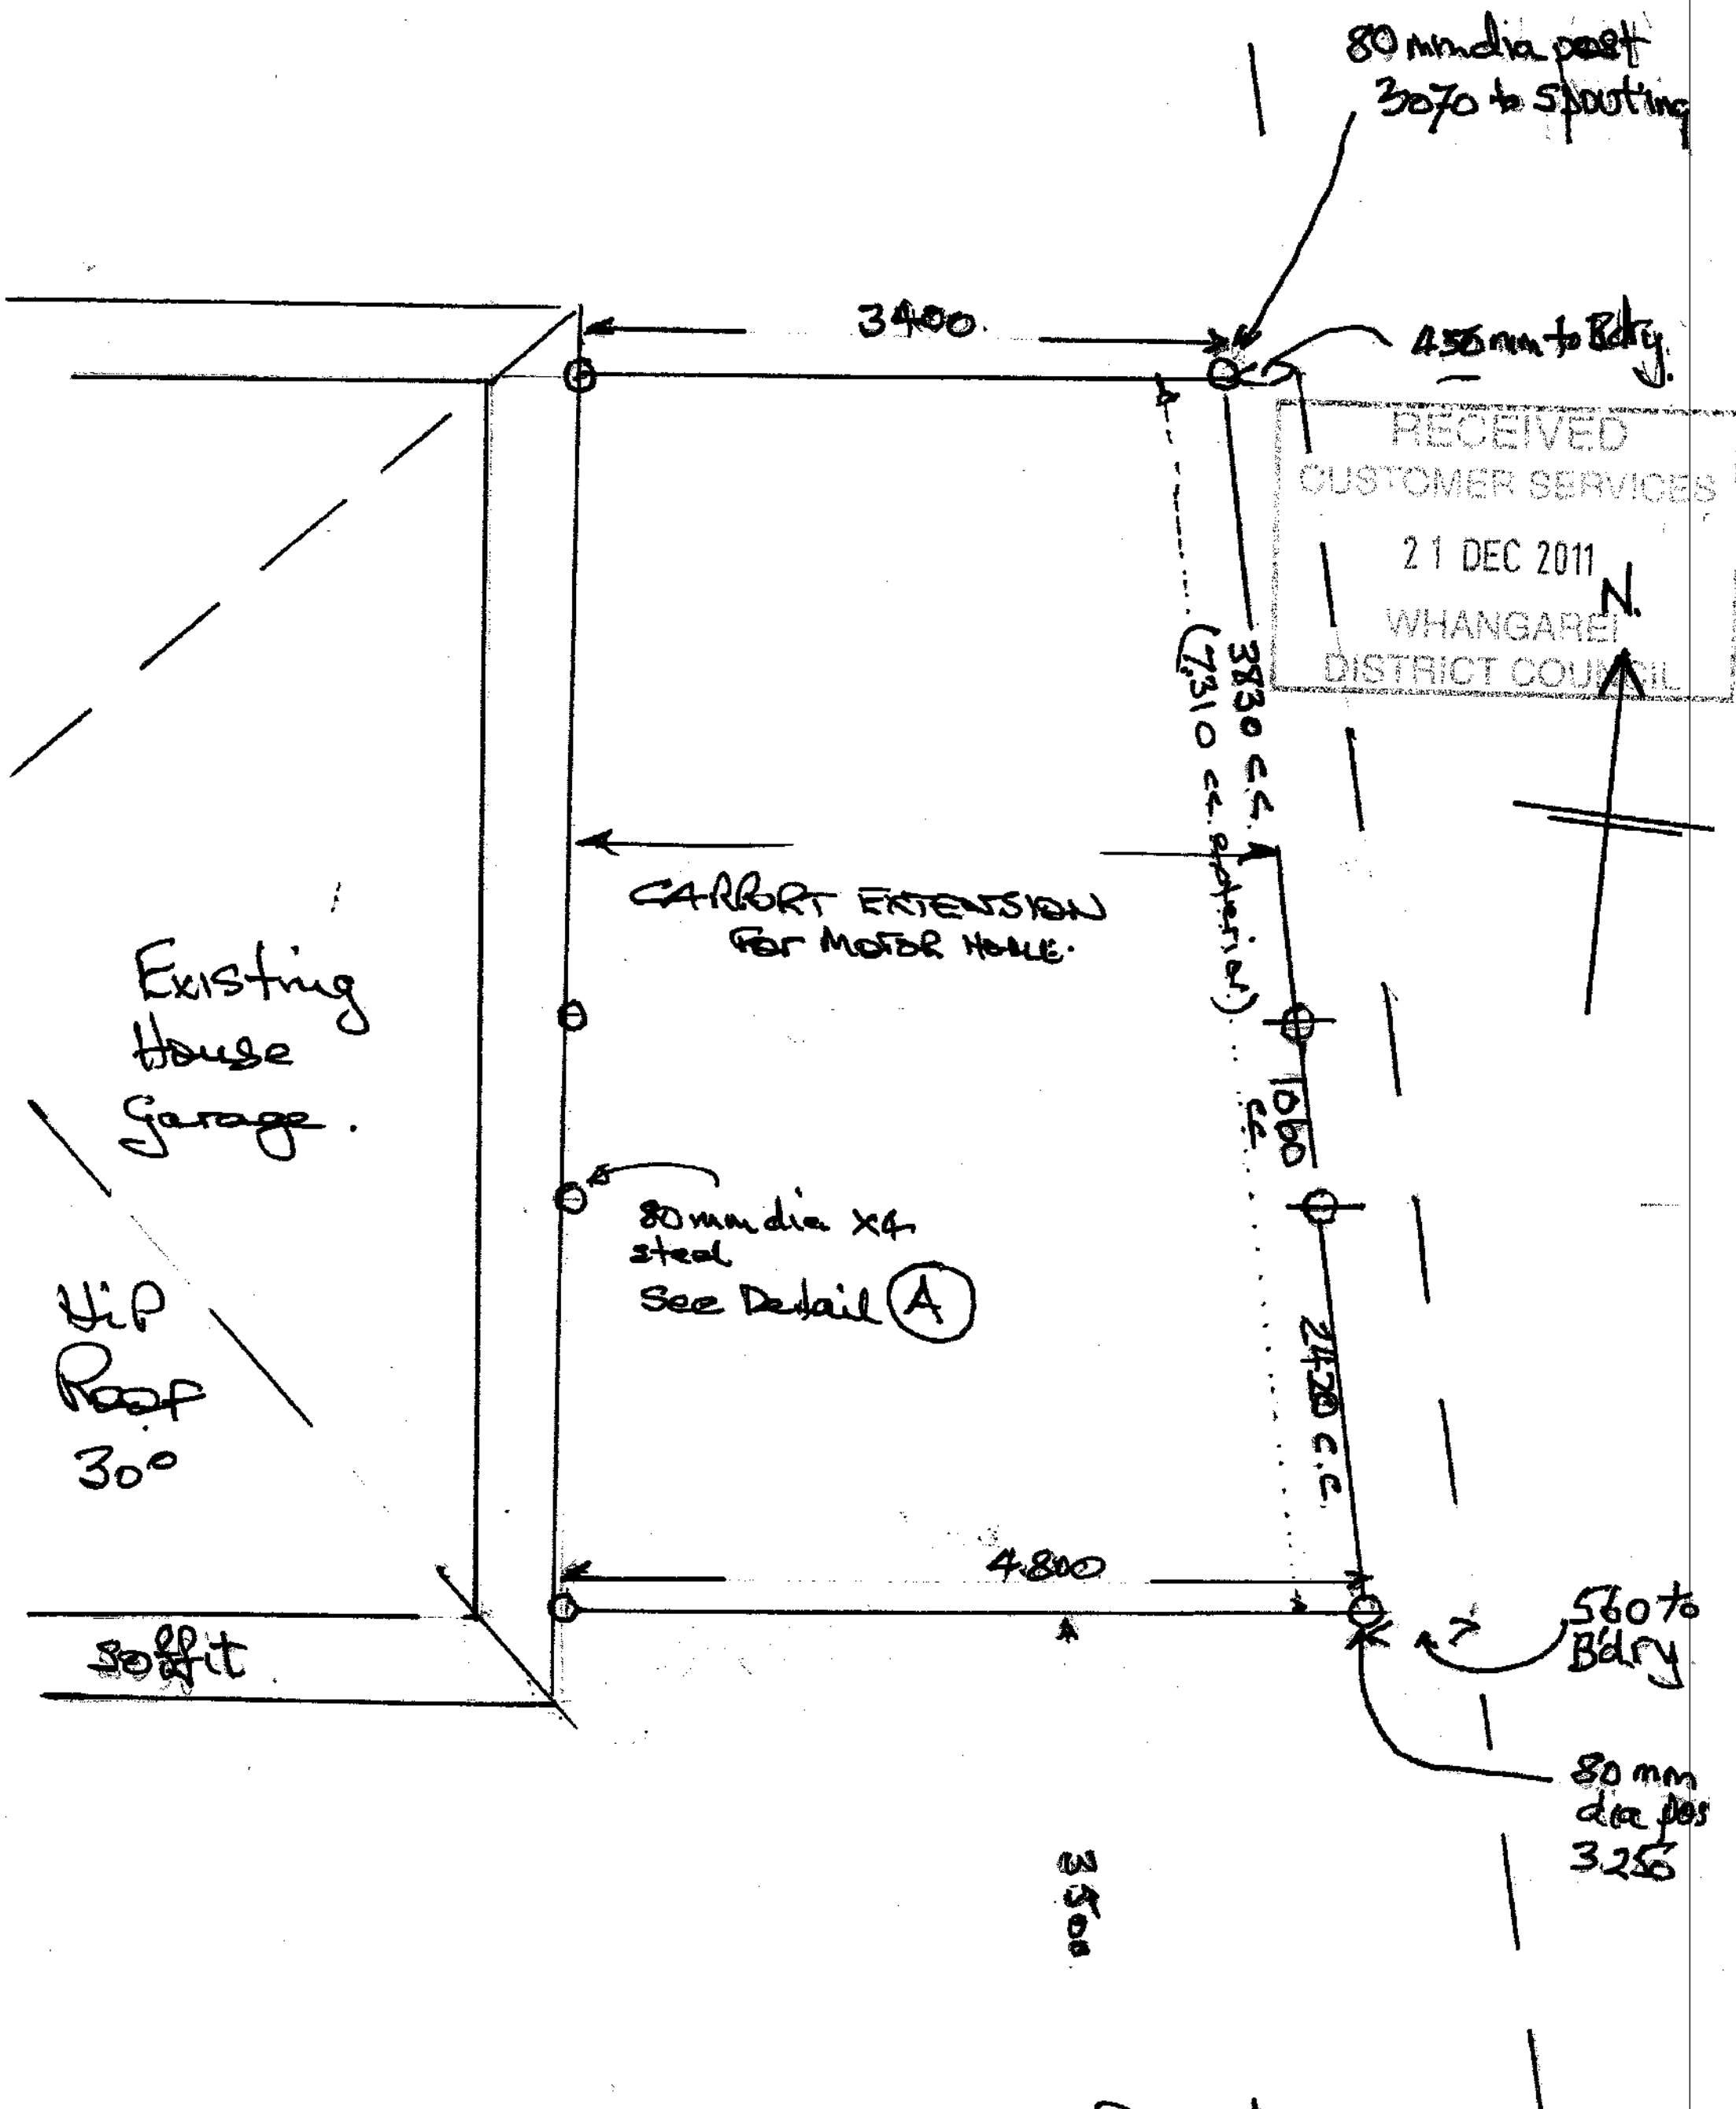 80 mm dia post
3070 to spouting
3400.
to Bdry.
RECEIVED
CUSTOMER SERVICES
21 DEC 2011
WHANGAREI
DISTRICT COUNCIL
N.
3830 c.c.
(7.310 cc. exterior)
CARPORT EXTENSION
FOR MOTOR HOME.
Existing
House
Garage.
1060
cc
80mm dia x4
steel
See Detail A
Hip
Roof
30°
2420 c.c.
4.800
soffit
560 to
B'dry
80 mm
dia pos
3500